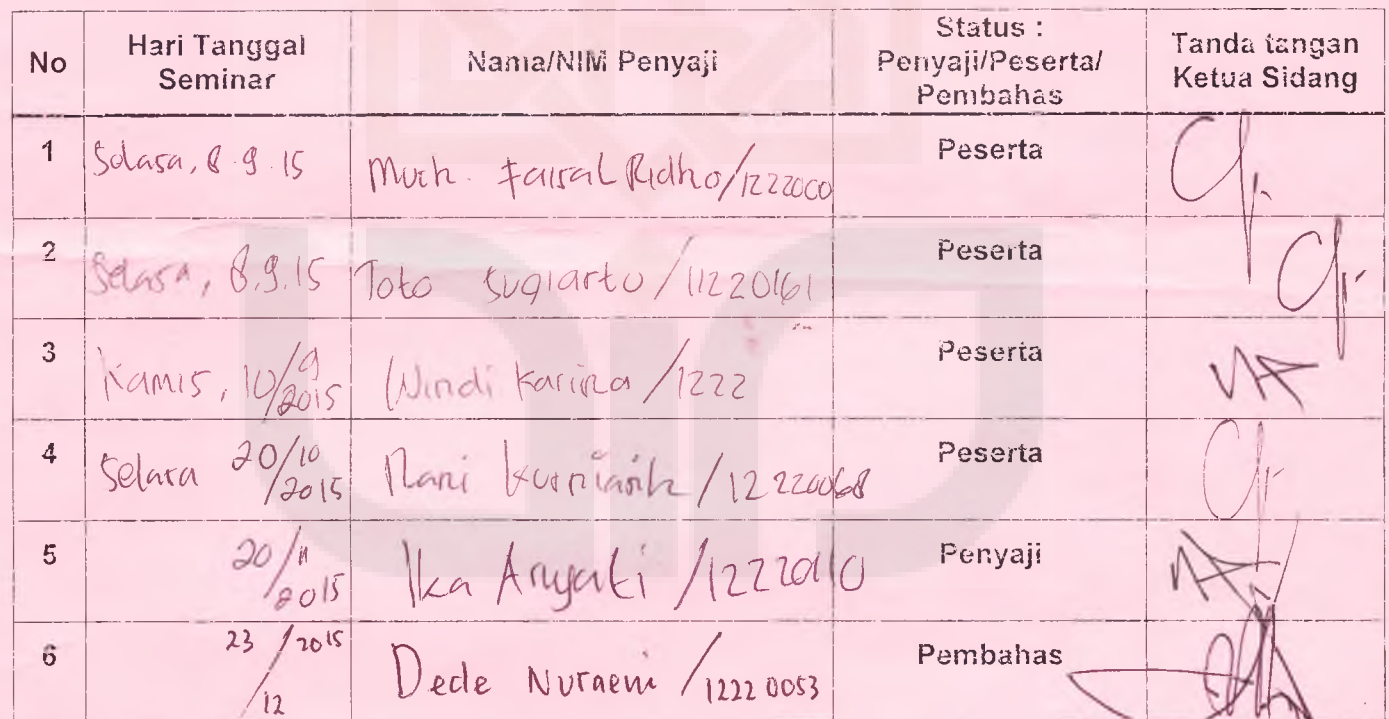 No
Hari Tanggal
Seminar
Nama/NIM Penyaji
Status :
Penyaji/Peserta/
Pembahas
Tanda tangan
Ketua Sidang
1
Selasa, 8.9.15
Much. Faisal Ridho/1222000
Peserta
2
Selasa, 8.9.15
Toto Sugiarto/11220161
Peserta
3
Kamis, 10/9
2015
Windi Karina/1222
Peserta
4
Selasa 20/10
/2015
Rani Kurniasih/12220068
Peserta
5
20/11
2015
Ika Aryati/12220110
Penyaji
6
23/2015
/12
Dede Nuraeni/12220053
Pembahas